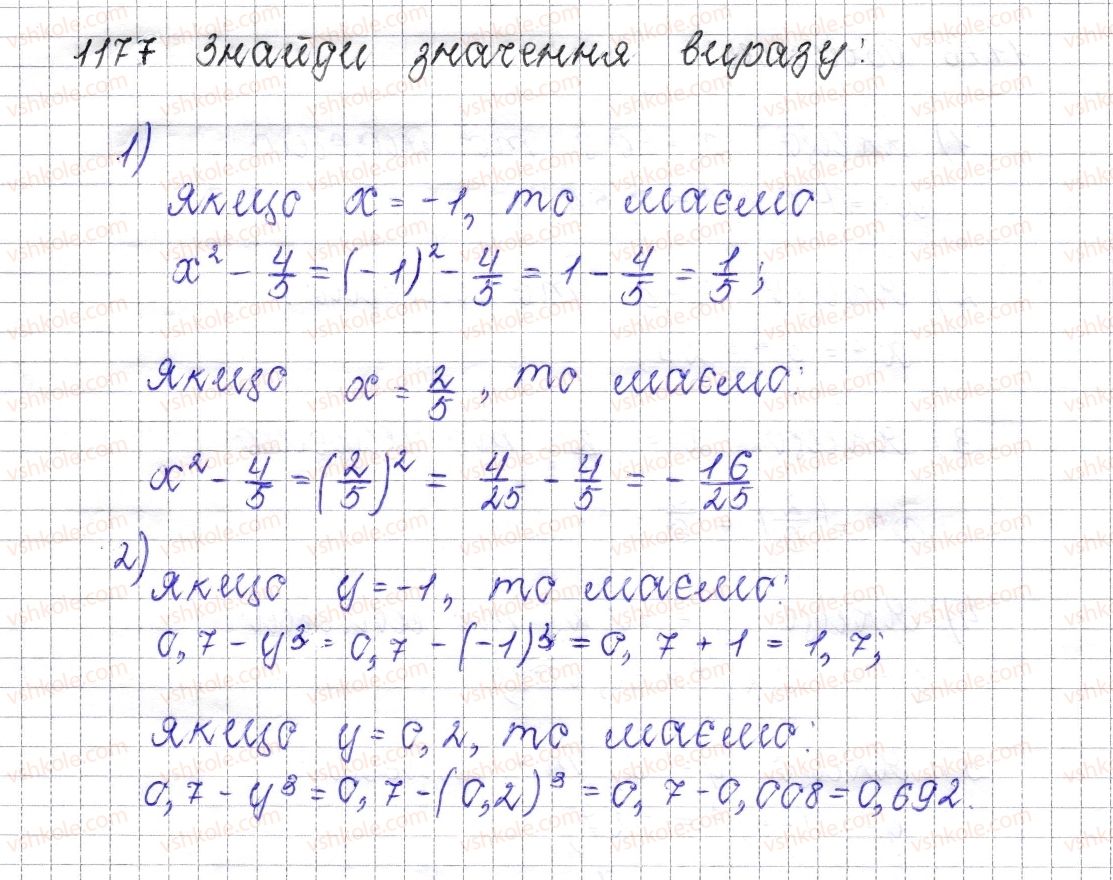 1177 Знайди значення виразу:
1)
Якщо x = -1, то маємо
x² - 4/5 = (-1)² - 4/5 = 1 - 4/5 = 1/5;
Якщо x = 2/5, то маємо:
x² - 4/5 = (2/5)² = 4/25 - 4/5 = - 16/25
2)
Якщо y = -1, то маємо:
0,7 - y³ = 0,7 - (-1)³ = 0,7 + 1 = 1,7;
Якщо y = 0,2, то маємо:
0,7 - y³ = 0,7 - (0,2)³ = 0,7 - 0,008 = 0,692.